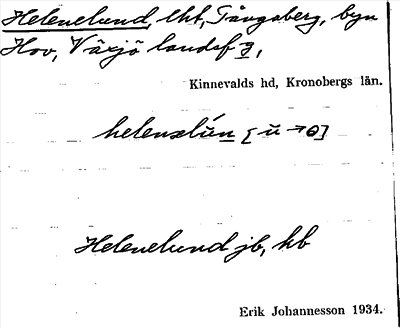 Helenelund, lht, Tångaberg, byn
Hov, Växjö landsf 3,
Kinnevalds hd, Kronobergs län.
helenəlún [ŭ → ө]
Helenelund jb, kb
Erik Johannesson 1934.